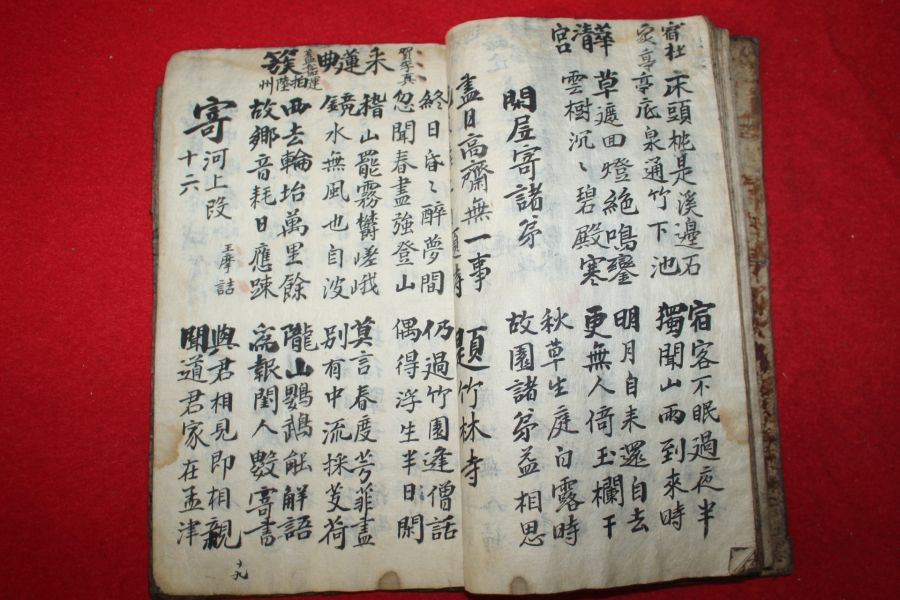 宿杜
家亭
床頭枕是溪邊石
宿客不眠過夜半
亭底泉通竹下池
獨聞山雨到來時
華清宮
草遮回燈絕鳴鑾
明月自来還自去
雲樹沉〻碧殿寒
更無人倚玉欄干
閑居寄諸弟
秋草生庭白露時
故園諸弟益相思
盡日高齋無一事
題竹林寺
終日昏〻醉夢間
仍過竹園逢僧話
忽聞春盡強登山
偶得浮生半日閑
采蓮曲
賀季真
稽山罷霧欝嵯峨
莫言春度芳菲盡
鏡水無風也自波
別有中流採芰荷
簇拍陸州
盖嘉運
西去輪坮萬里餘
隴山鸚鵡能解語
故鄉音耗日應踈
為報閨人數寄書
寄河上段十六
王摩詰
與君相見即相親
聞道君家在孟津
十九